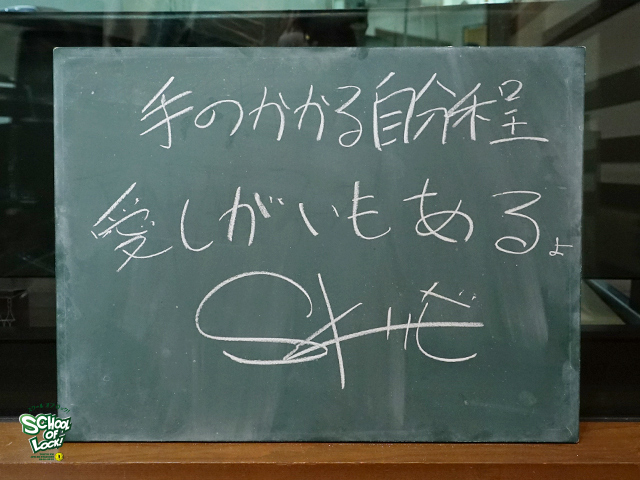 手のかかる自分程
愛しがいもあるよ
SCHOOL
OF
LOCK!